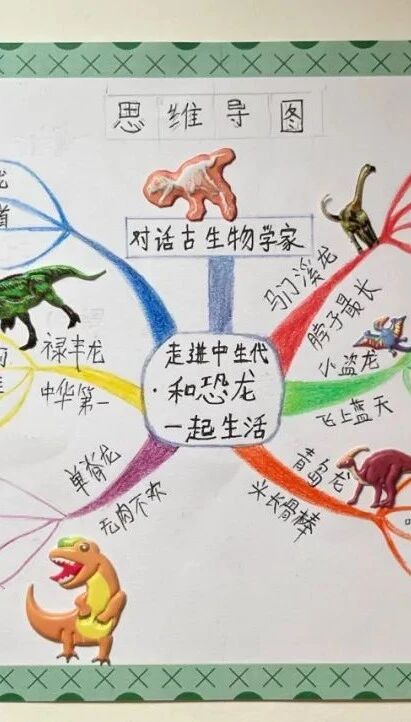 思维导图
对话古生物学家
走进中生代
·和恐龙
一起生活
马门溪龙
脖子最长
小盗龙
飞上蓝天
青岛龙
头长骨棒
禄丰龙
中华第一
单脊龙
无肉不欢
龙